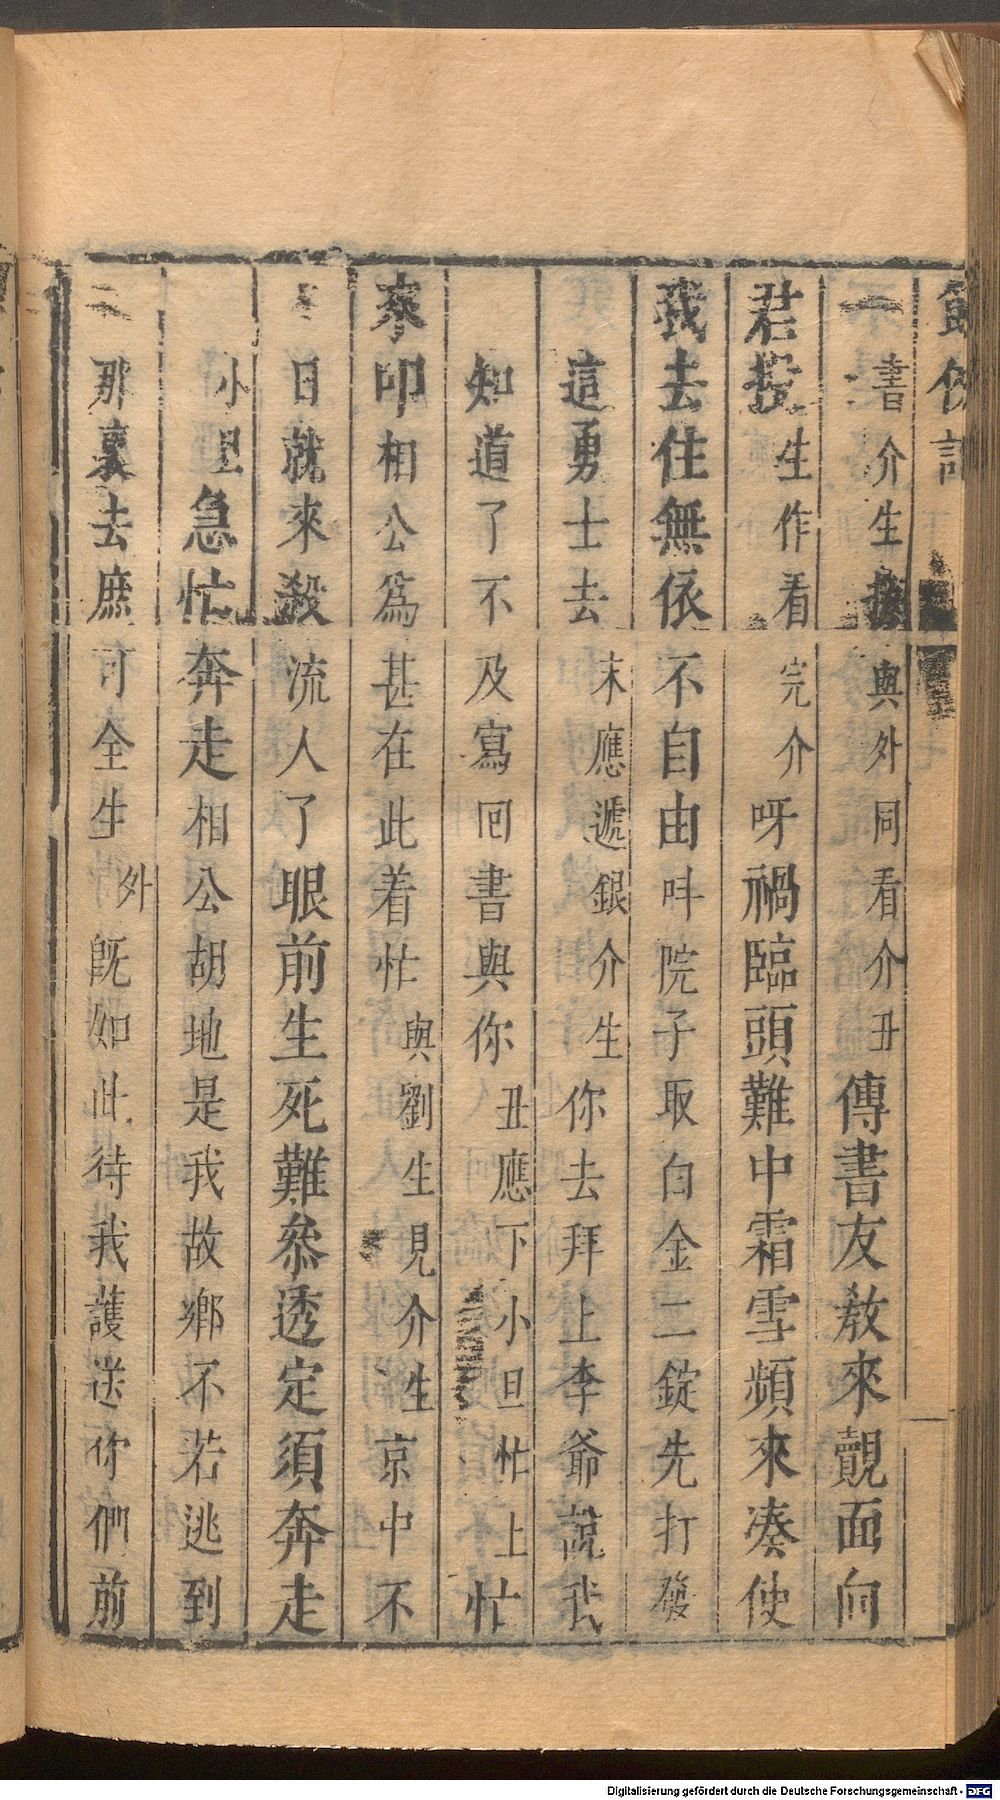 節俠記
書介生接與外同看介丑傳書友教來覿面向
君投生作看完介呀禍臨頭難中霜雪頻來湊使
我去住無依不自由呌院子取白金二錠先打發
這勇士去末應遞銀介生你去拜上李爺說我
知道了不及寫回書與你丑應下小旦忙上忙
來叩相公爲甚在此着忙與劉生見介生京中不
日就來殺流人了眼前生死難叅透定須奔走
小旦急忙奔走相公胡地是我故鄉不若逃到
那裏去庶可全生外旣如此待我護送你們前
Digitalisierung gefördert durch die Deutsche Forschungsgemeinschaft - DFG